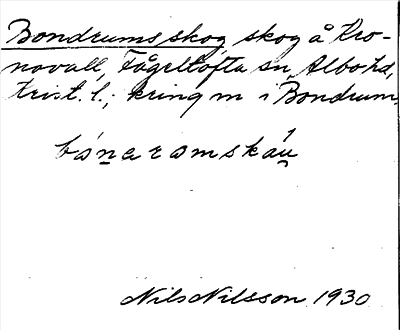 Bondrums skog, skog å Kro-
novall, Fågeltofta sn, Albo hd,
Krist. l.; kring m i Bondrum.
bónaramskáu
Nils Nilsson 1930